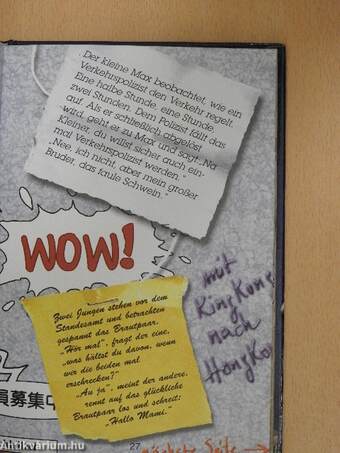 Der kleine Max beobachtet, wie ein
Verkehrspolizist den Verkehr regelt.
Eine halbe Stunde, eine Stunde,
zwei Stunden. Dem Polizist fällt das
auf. Als er schließlich abgelöst
wird, geht er zu Max und sagt: „Na
Kleiner, du willst sicher auch ein-
mal Verkehrspolizist werden."
„Nee, ich nicht, aber mein großer
Bruder, das faule Schwein."
WOW!
mit
KingKong
nach
HongKo
Zwei Jungen stehen vor dem
Standesamt und betrachten
gespannt das Brautpaar.
„Hör mal", fragt der eine,
„was hältst du davon, wenn
wir die beiden mal
erschrecken?"
„Au ja", meint der andere,
rennt auf das glückliche
Brautpaar los und schreit:
„Hallo Mami."
員募集中
27
nächste Seite
Antikvárium.hu